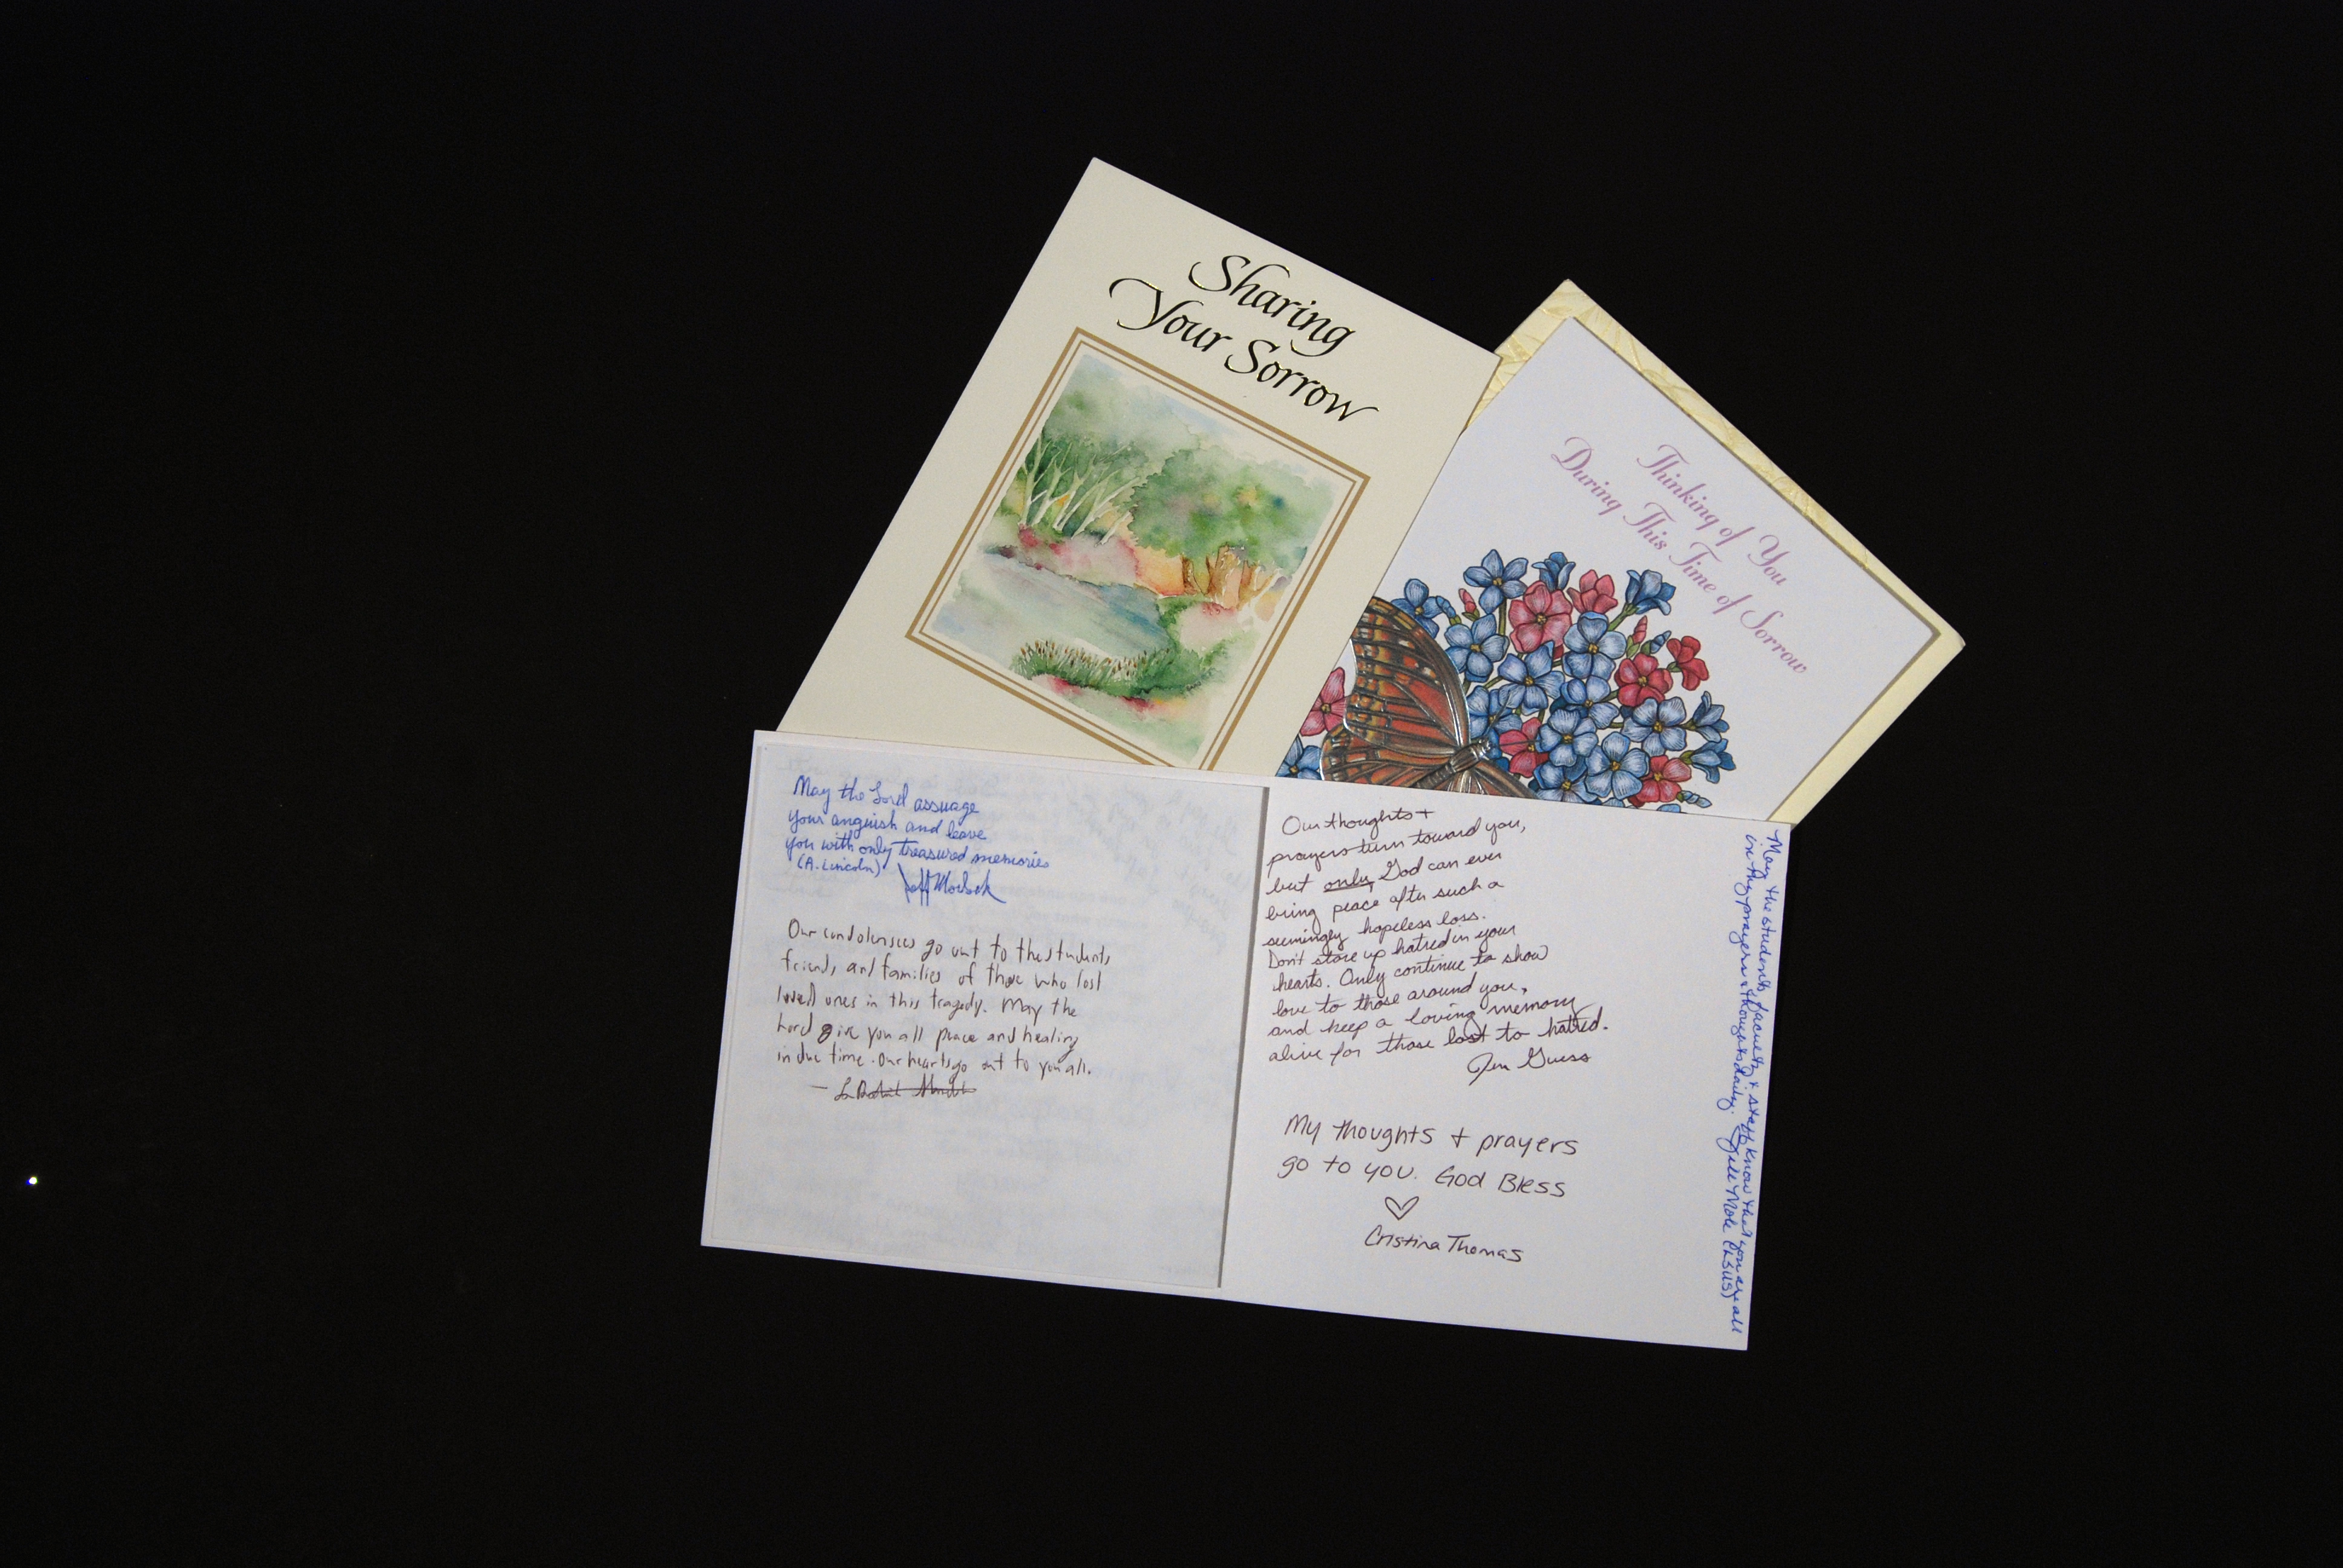 Sharing
Your Sorrow
Thinking of You
During This Time of Sorrow
May the Lord assuage
your anguish and leave
you with only treasured memories
(A. Lincoln)
Jeff
Our condolences go out to the students,
friends, and families of those who lost
loved ones in this tragedy. May the
Lord give you all peace and healing
in due time. Our hearts go out to you all.
Our thoughts +
prayers turn toward you,
but only God can ever
bring peace after such a
seemingly hopeless loss.
Don't store up hatred in your
hearts. Only continue to show
love to those around you,
and keep a loving memory
alive for those lost to hatred.
Jen Guess
My thoughts + prayers
go to you. God Bless
♡
Cristina Thomas
May the students, faculty, + staff know that you are all
in my prayers & thoughts daily. (LSUS)